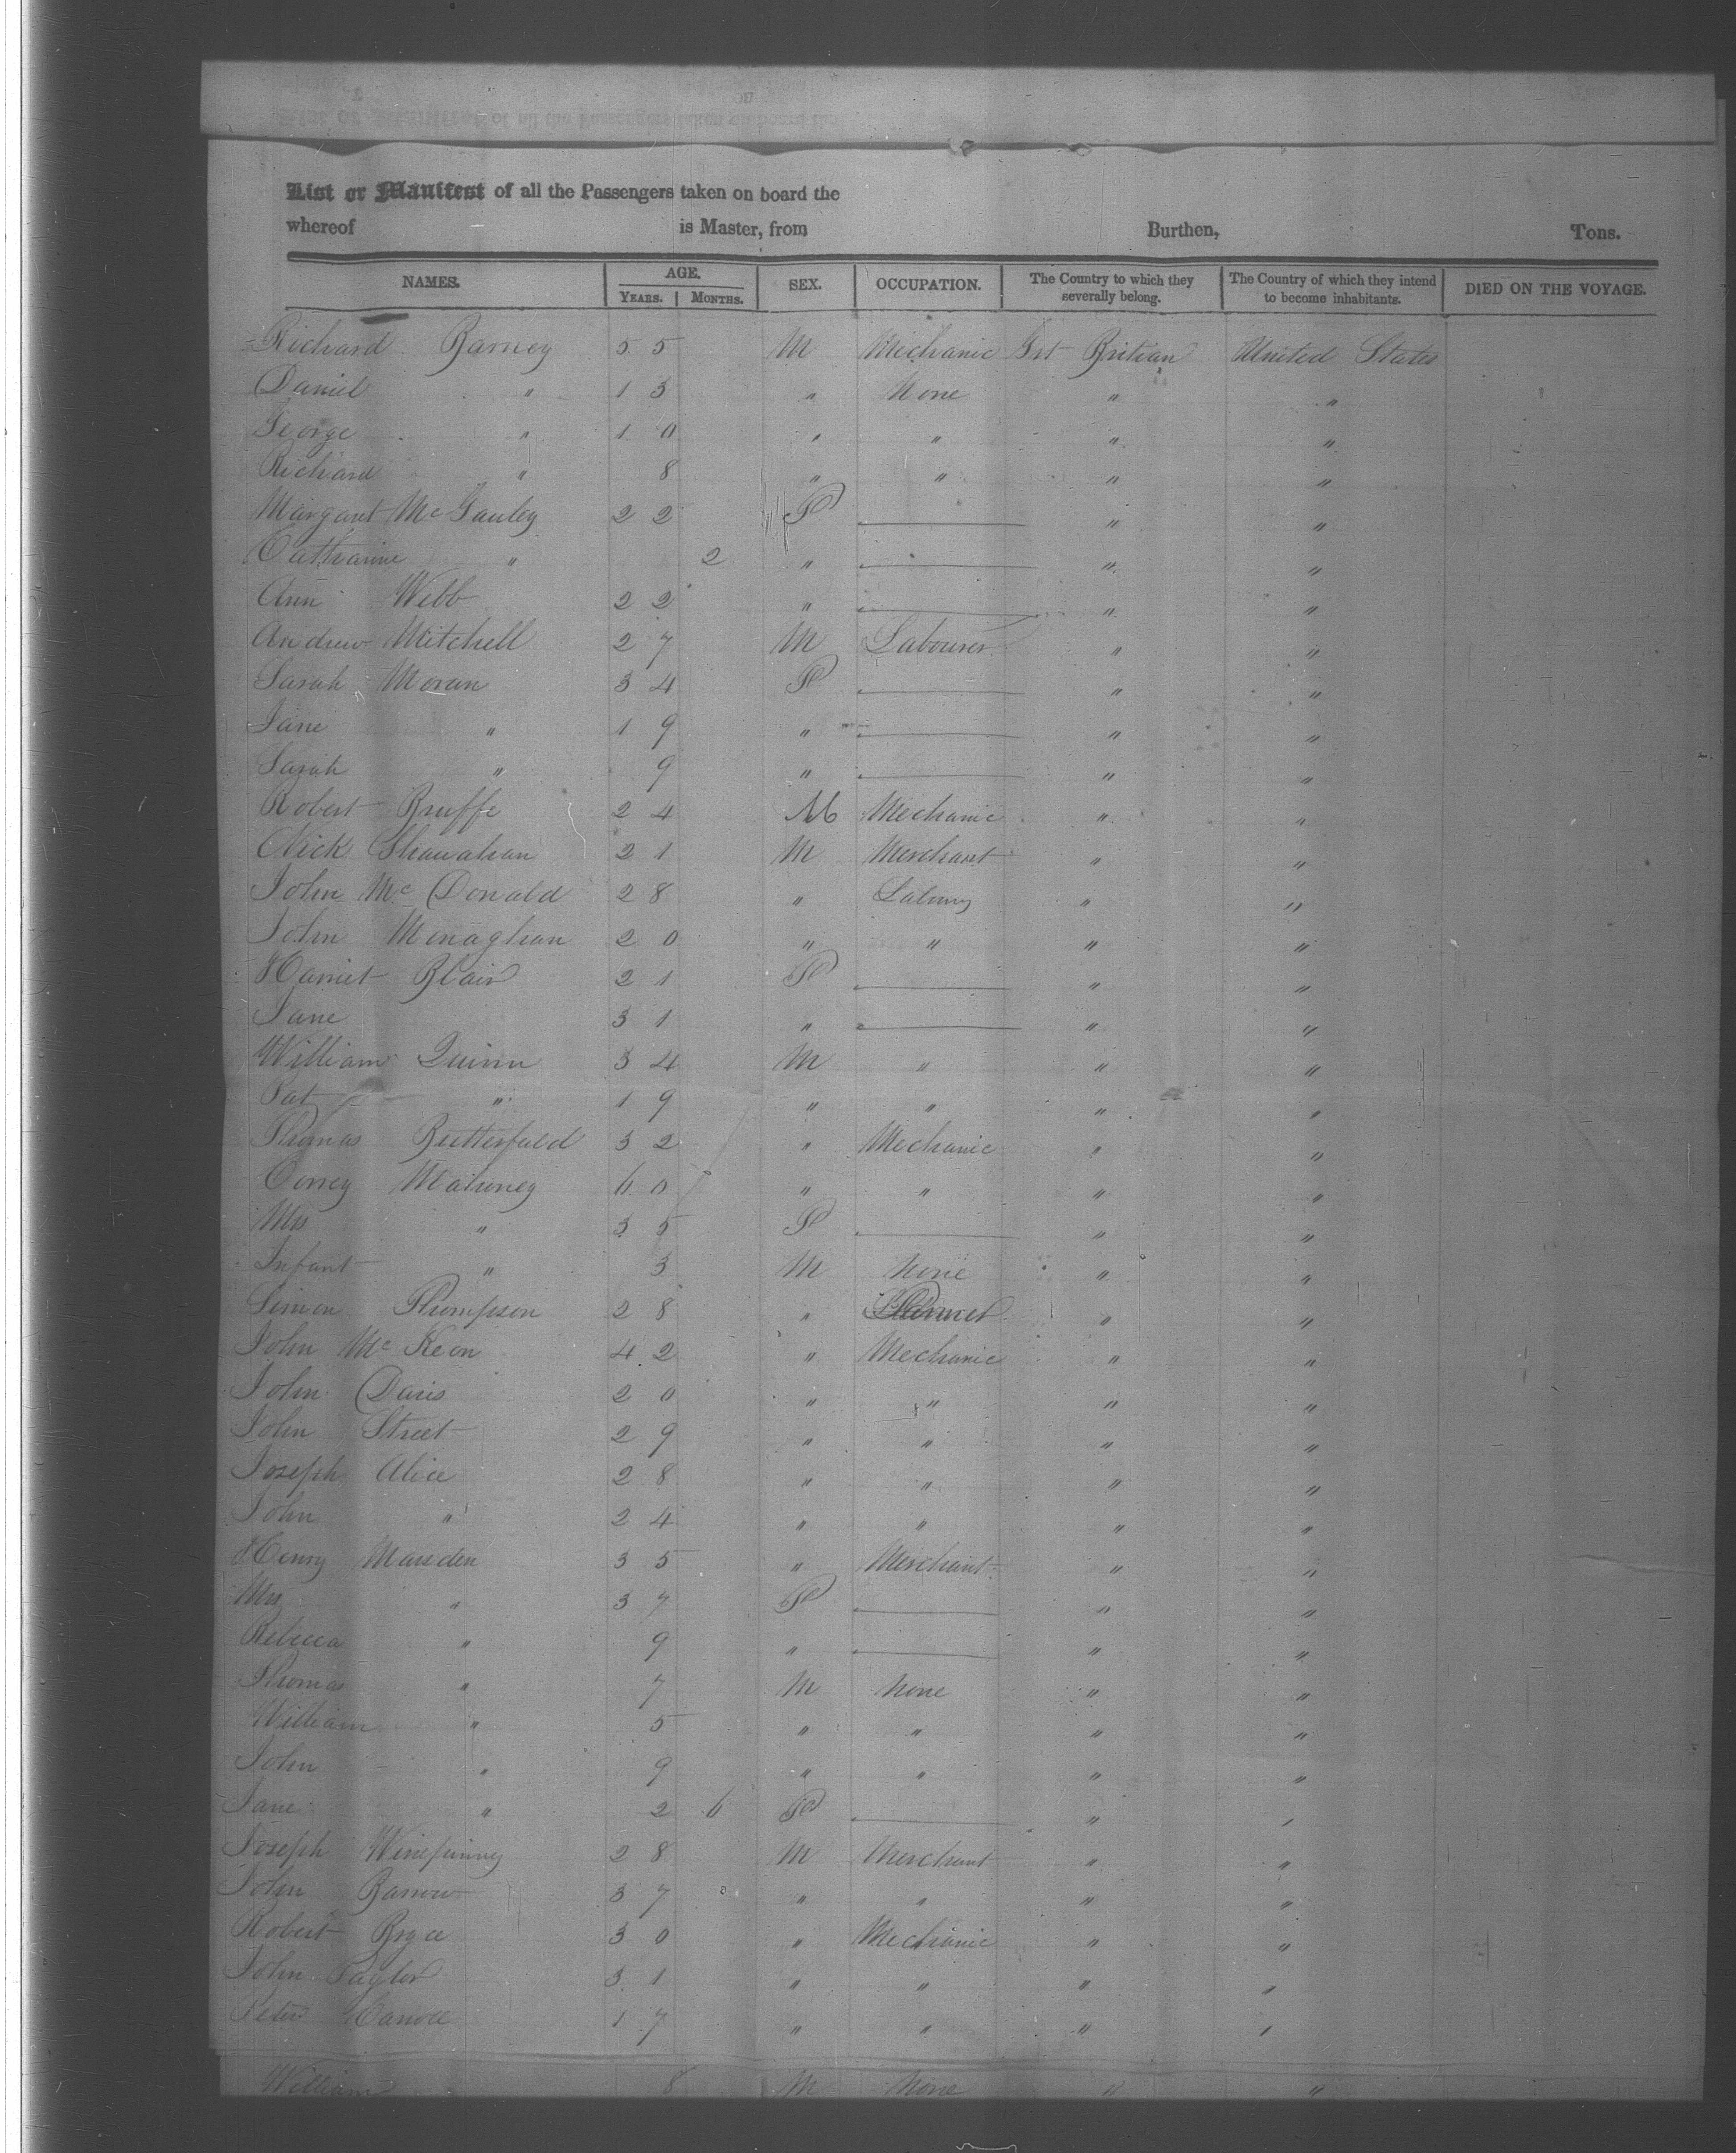 List or Manifest of all the Passengers taken on board the
whereof is Master, from Burthen, Tons.
NAMES. AGE. SEX. OCCUPATION. The Country to which they severally belong. The Country of which they intend to become inhabitants. DIED ON THE VOYAGE.
YEARS. MONTHS.
Richard Barney 55 M Mechanic Grt Britian United States
Daniel " 13 " None " "
George " 10 " " " "
Richard " 8 " " " "
Margaret McGauley 22 F " "
Catharine " 2 " " "
Ann Webb 22 " " "
Andrew Mitchell 27 M Labourer " "
Sarah Moran 34 F " "
Jane " 19 " " "
Sarah " 9 " " "
Robert Bruffe 24 M Mechanic " "
Nick Shanahan 21 M Merchant " "
John McDonald 28 " " "
John Monaghan 20 " " " "
Harriet Blair 21 F " "
Jane 31 " " "
William Quinn 34 M " " "
Pat " 19 " " " "
Thomas Butterfield 32 " Mechanic " "
Mahoney 60 " " " "
Mrs " 35 F " "
Infant " 3 M None " "
Simon Thompson 28 " " "
John McKeon 42 " Mechanic " "
John Davis 20 " " " "
John Street 29 " " " "
Joseph Alice 28 " " " "
John " 24 " " " "
Henry Marsden 35 " Merchant " "
Mrs " 37 F " "
Rebecca " 9 " " "
Thomas " 7 M None " "
William " 5 " " " "
John " 9 " " " "
Jane " 2 6 F " "
Joseph Winepinney 28 M Merchant " "
John Barrow 37 " " " "
Robert Bryce 30 " Mechanic " "
John Taylor 31 " " " "
Peter Carroll 17 " " " "
William 8 M None " "